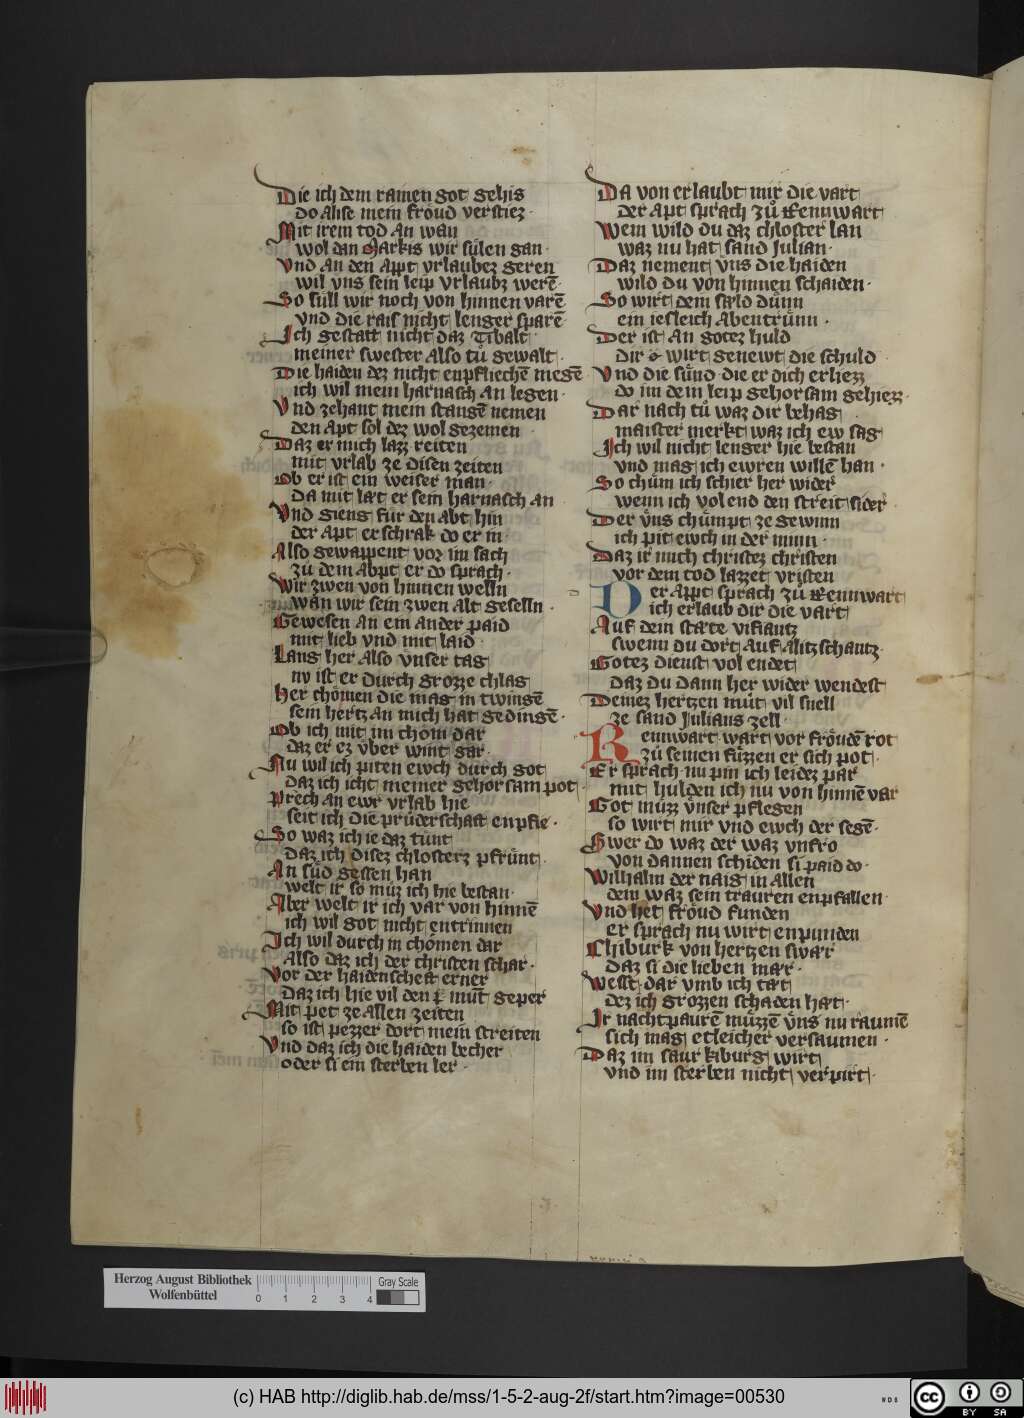 Die ich dem rainen got gehis
do Alise mein fröud verstiez
Mit irem tod an wan
wol dan Markis wir sülen gan
Vnd an den Appt vrlaubez geren
wil vns sein leip vrlaubz werē
So süll wir noch von hinnen varē
vnd die rais nicht lenger sparē
Ich gestatt nicht daz Tibalt
meiner swester also tů gewalt
Die haiden dez nicht enpfliechē megē
ich wil mein harnasch an legen
Vnd zehant mein stangē nemen
den Apt sol dez wol gezemen
Daz er mich lazz reiten
mit vrlab ze disen zeiten
Ob er ist ein weiser man
Da mit læt er sein harnasch an
Vnd gieng für den Abt hin
der Apt erschrak do er in
Also gewappent vor im sach
zu dem Abpt er do sprach
Wir zwen von hinnen welln
wan wir sein zwen alt geselln
Gewesen an ein ander paid
mit lieb vnd mit laid
Lang her also vnser tag
nv ist er durch grozze chlag
Her chömen die mag in twingē
sein hertz an mich hat gedingē
Ob ich mit im chom dar
daz er ez vber wint gar
Nu wil ich piten ewch durch got
daz ich icht meiner gehorsam pot
Prech an ewr vrlab hie
seit ich die prüderschaft enpfie
So waz ich ie daz tünt
daz ich disez chlosterz pfrünt
An süd gessen han
welt ir so müz ich hie bestan
Aber welt ir ich var von hinnē
ich wil got nicht entrinnen
Ich wil durch in chömen dar
Also daz ich der christen schar
Vor der haidenscheft erner
Daz ich hie vil den mūt geper
Mit pet ze allen zeiten
so ist pezzer dort mein streiten
Vnd daz ich die haiden becher
oder si ein sterben ler
Da von erlaubt mir die vart
der Apt sprach zů Rennwart
Wem wild du daz chloster lan
waz nu hat sand Julian
Daz nement vns die haiden
wild du von hinnen schaiden
So wirt dem sæld dünn
ein iesleich Abentrünn
Der ist an gotez huld
dir wirt genewt die schuld
Vnd die sünd die er dich erliezz
do im dein leip gehorsam gehiezz
Dar nach tů waz dir behag
maister merkt waz ich ew sag
Ich wil nicht lenger hie bestan
vnd mag ich ewren willē han
So chüm ich schier her wider
wenn ich vol end den streit sider
Der vns chümpt ze gewinn
ich pit ewch in der minn
Daz ir mich christez christen
vor dem tod lazzet vristen
Der Appt sprach zů Rennwart
ich erlaub dir die vart
Auf dem stæte visiantz
swenn du dort auf Alitzschantz
Gotez dienst vol endet
daz du dann her wider wendest
Deinez hertzen můt vil snell
ze sand Julians zell
Rennwart wart vor fröudē rot
zů seinen füzzen er sich pot
Er sprach nu pin ich leidez par
mit hulden ich nu von hinnē var
Got müzz vnser pflegen
so wirt mir vnd ewch der segē
Swer do waz der waz vnfro
von dannen schiden si paid do
Wilhalm der naig in allen
dem waz sein trauren enpfallen
Vnd het fröud funden
er sprach nu wirt enpunden
Chiburk von hertzen swær
daz si die lieben mær
Wesst dar vmb ich tæt
dez ich grozzen schaden hæt
Ir nachtpaurē müzzē vns nu raumē
sich mag etleicher versaumen
Daz im saur kiburg wirt
vnd im sterben nicht verpirt
Herzog August Bibliothek
Wolfenbüttel
0 1 2 3 4
Gray Scale
(c) HAB http://diglib.hab.de/mss/1-5-2-aug-2f/start.htm?image=00530
cc BY SA